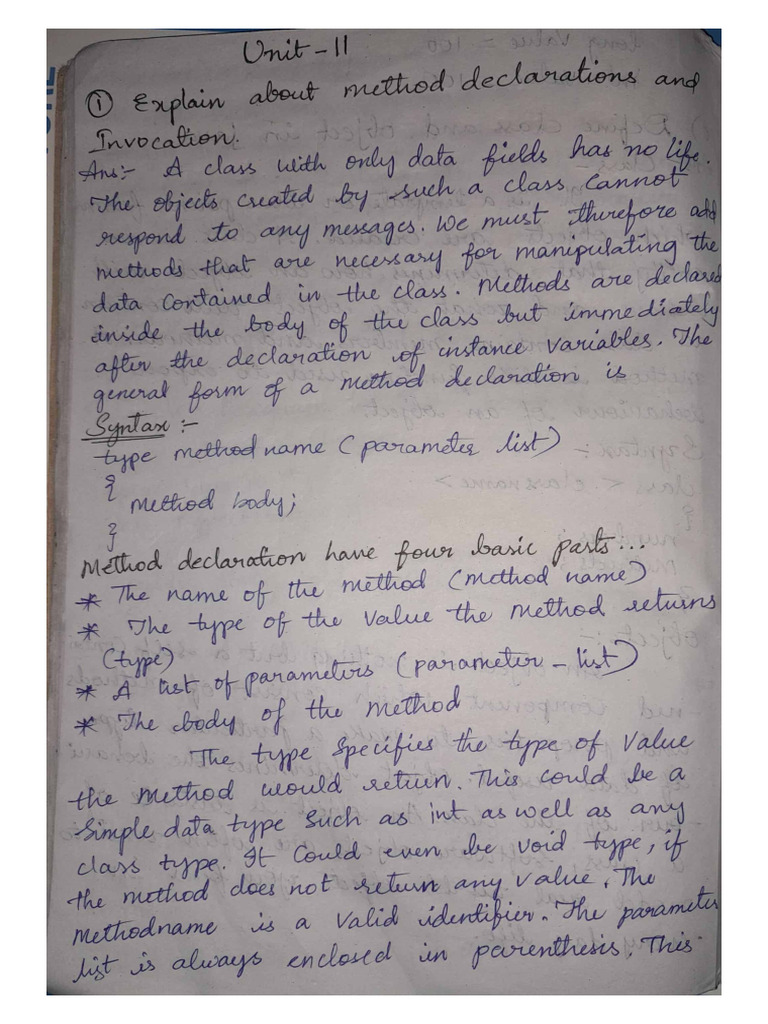 Unit - II
① Explain about method declarations and
Invocation.
Ans:- A class with only data fields has no life.
The objects created by such a class cannot
respond to any messages. We must therefore add
methods that are necessary for manipulating the
data contained in the class. Methods are declared
inside the body of the class but immediately
after the declaration of instance variables. The
general form of a method declaration is
Syntax :-
type method name (parameter list)
{
Method body;
}
Method declaration have four basic parts...
* The name of the method (method name)
* The type of the value the method returns
(type)
* A list of parameters (parameter - list)
* The body of the method
The type specifies the type of value
the method would return. This could be a
simple data type such as int as well as any
class type. It could even be void type, if
the method does not return any value. The
Methodname is a valid identifier. The parameter
list is always enclosed in parenthesis. This